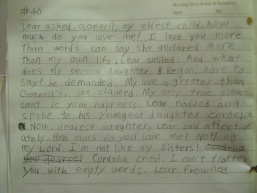 #40
Lear asked, Goneril, my eldest child, how
much do you love me? I love you more
than words can say she declared more
than my own life. Lear smiled. And what
does my second daughter, Regan, have to
say? he demanded. My love is greater than
Goneril's, she claimed. My only true pleas
sant is your happiness. Lear nodded and
spoke to his youngest daughter Cordelia
Now, dearest daughter, Lear said affect
ately. How much do you love me? Nothing
my Lord. I'm not like my sisters!
Cordelia cried I can't flatter
you with empty words. Lear frowned